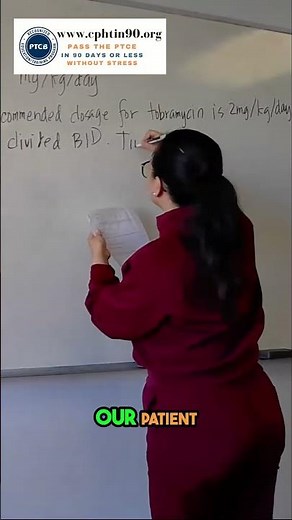 www.cphtin90.org
PTCB
PASS THE PTCE
IN 90 DAYS OR LESS
WITHOUT STRESS
mg/kg/day
commended dosage for tobramycin is 2mg/kg/day
divided BID. Tu
OUR PATIENT